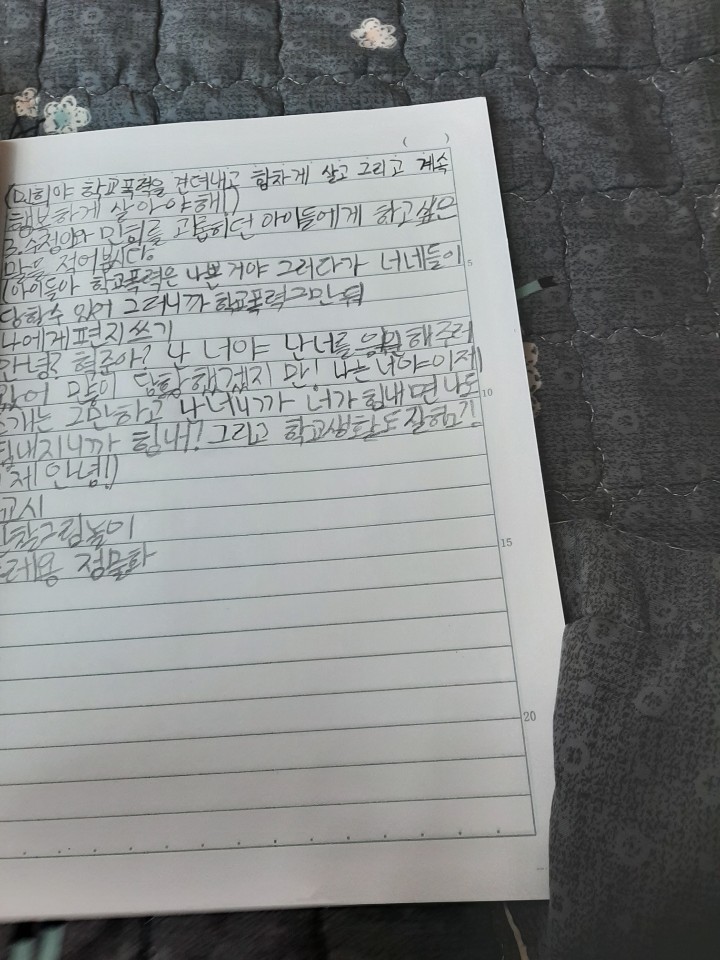 ( )
(민희야 학교폭력을 견뎌내고 힘차게 살고 그리고 계속
행복하게 살아야해!)
3. 소정이와 민희를 괴롭히던 아이들에게 하고싶은
말을 적어봅시다.
(아이들아 학교폭력은 나쁜거야 그러다가 너네들이
5
당할수 있어 그러니까 학교폭력그만
나에게편지쓰기
안녕? 현준아? 나 너야 난너를 해주러
왔어 많이 당황했겠지 만! 나는너야이제
10
그만하고 나너니까 너가힘내면나도
힘내지니까 힘내! 그리고 학교생활도잘
제 안녕!)
고시
그림놀이
15
정물화
20